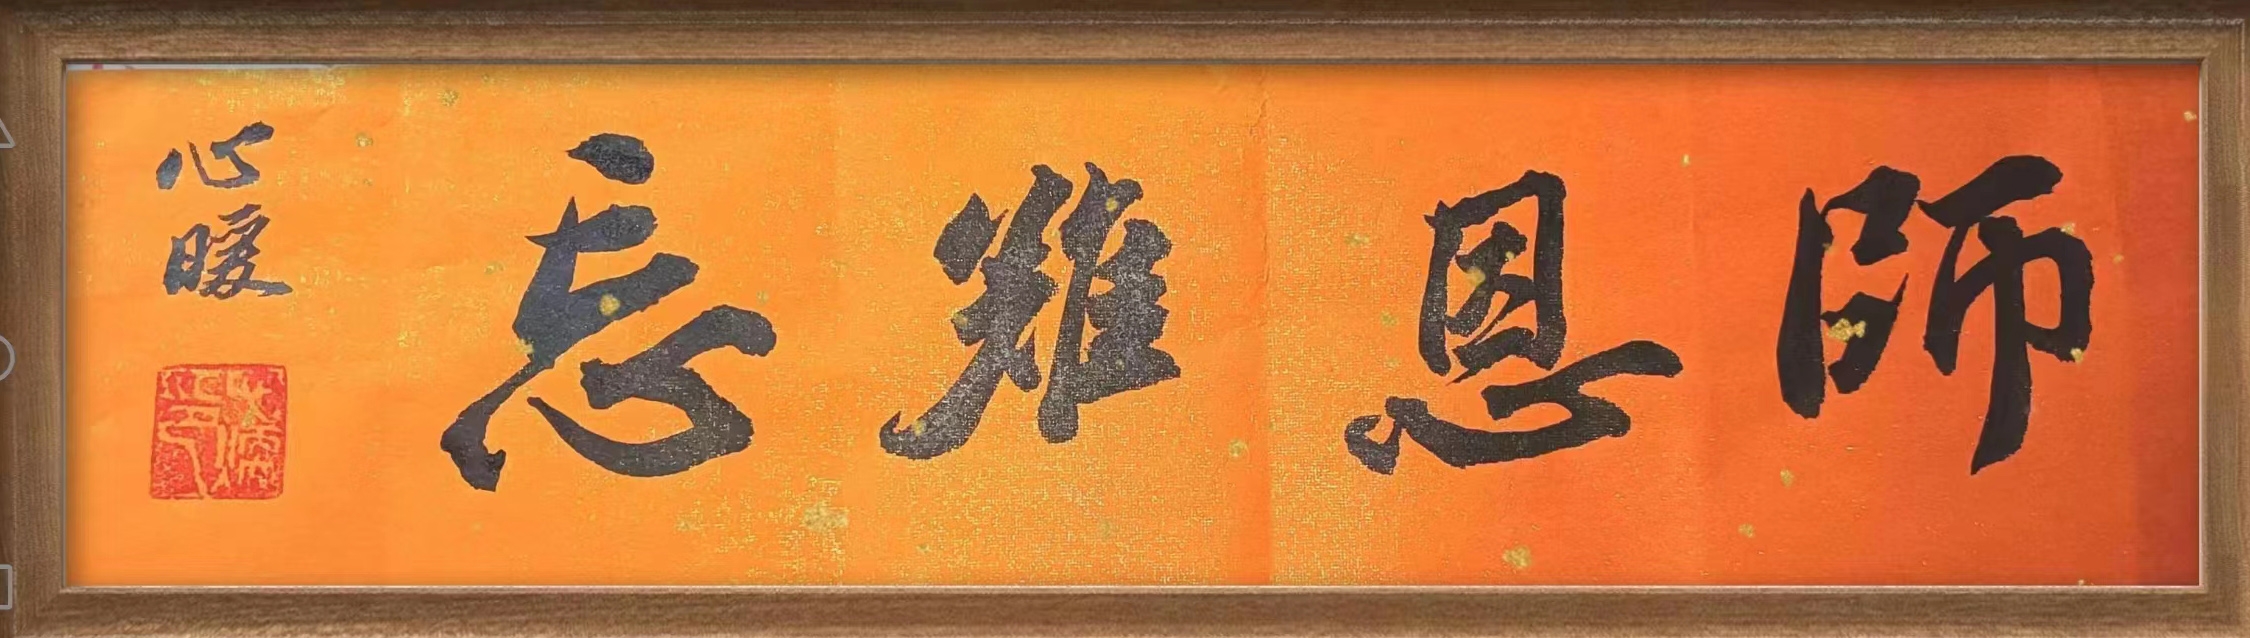 師恩難忘
心暖